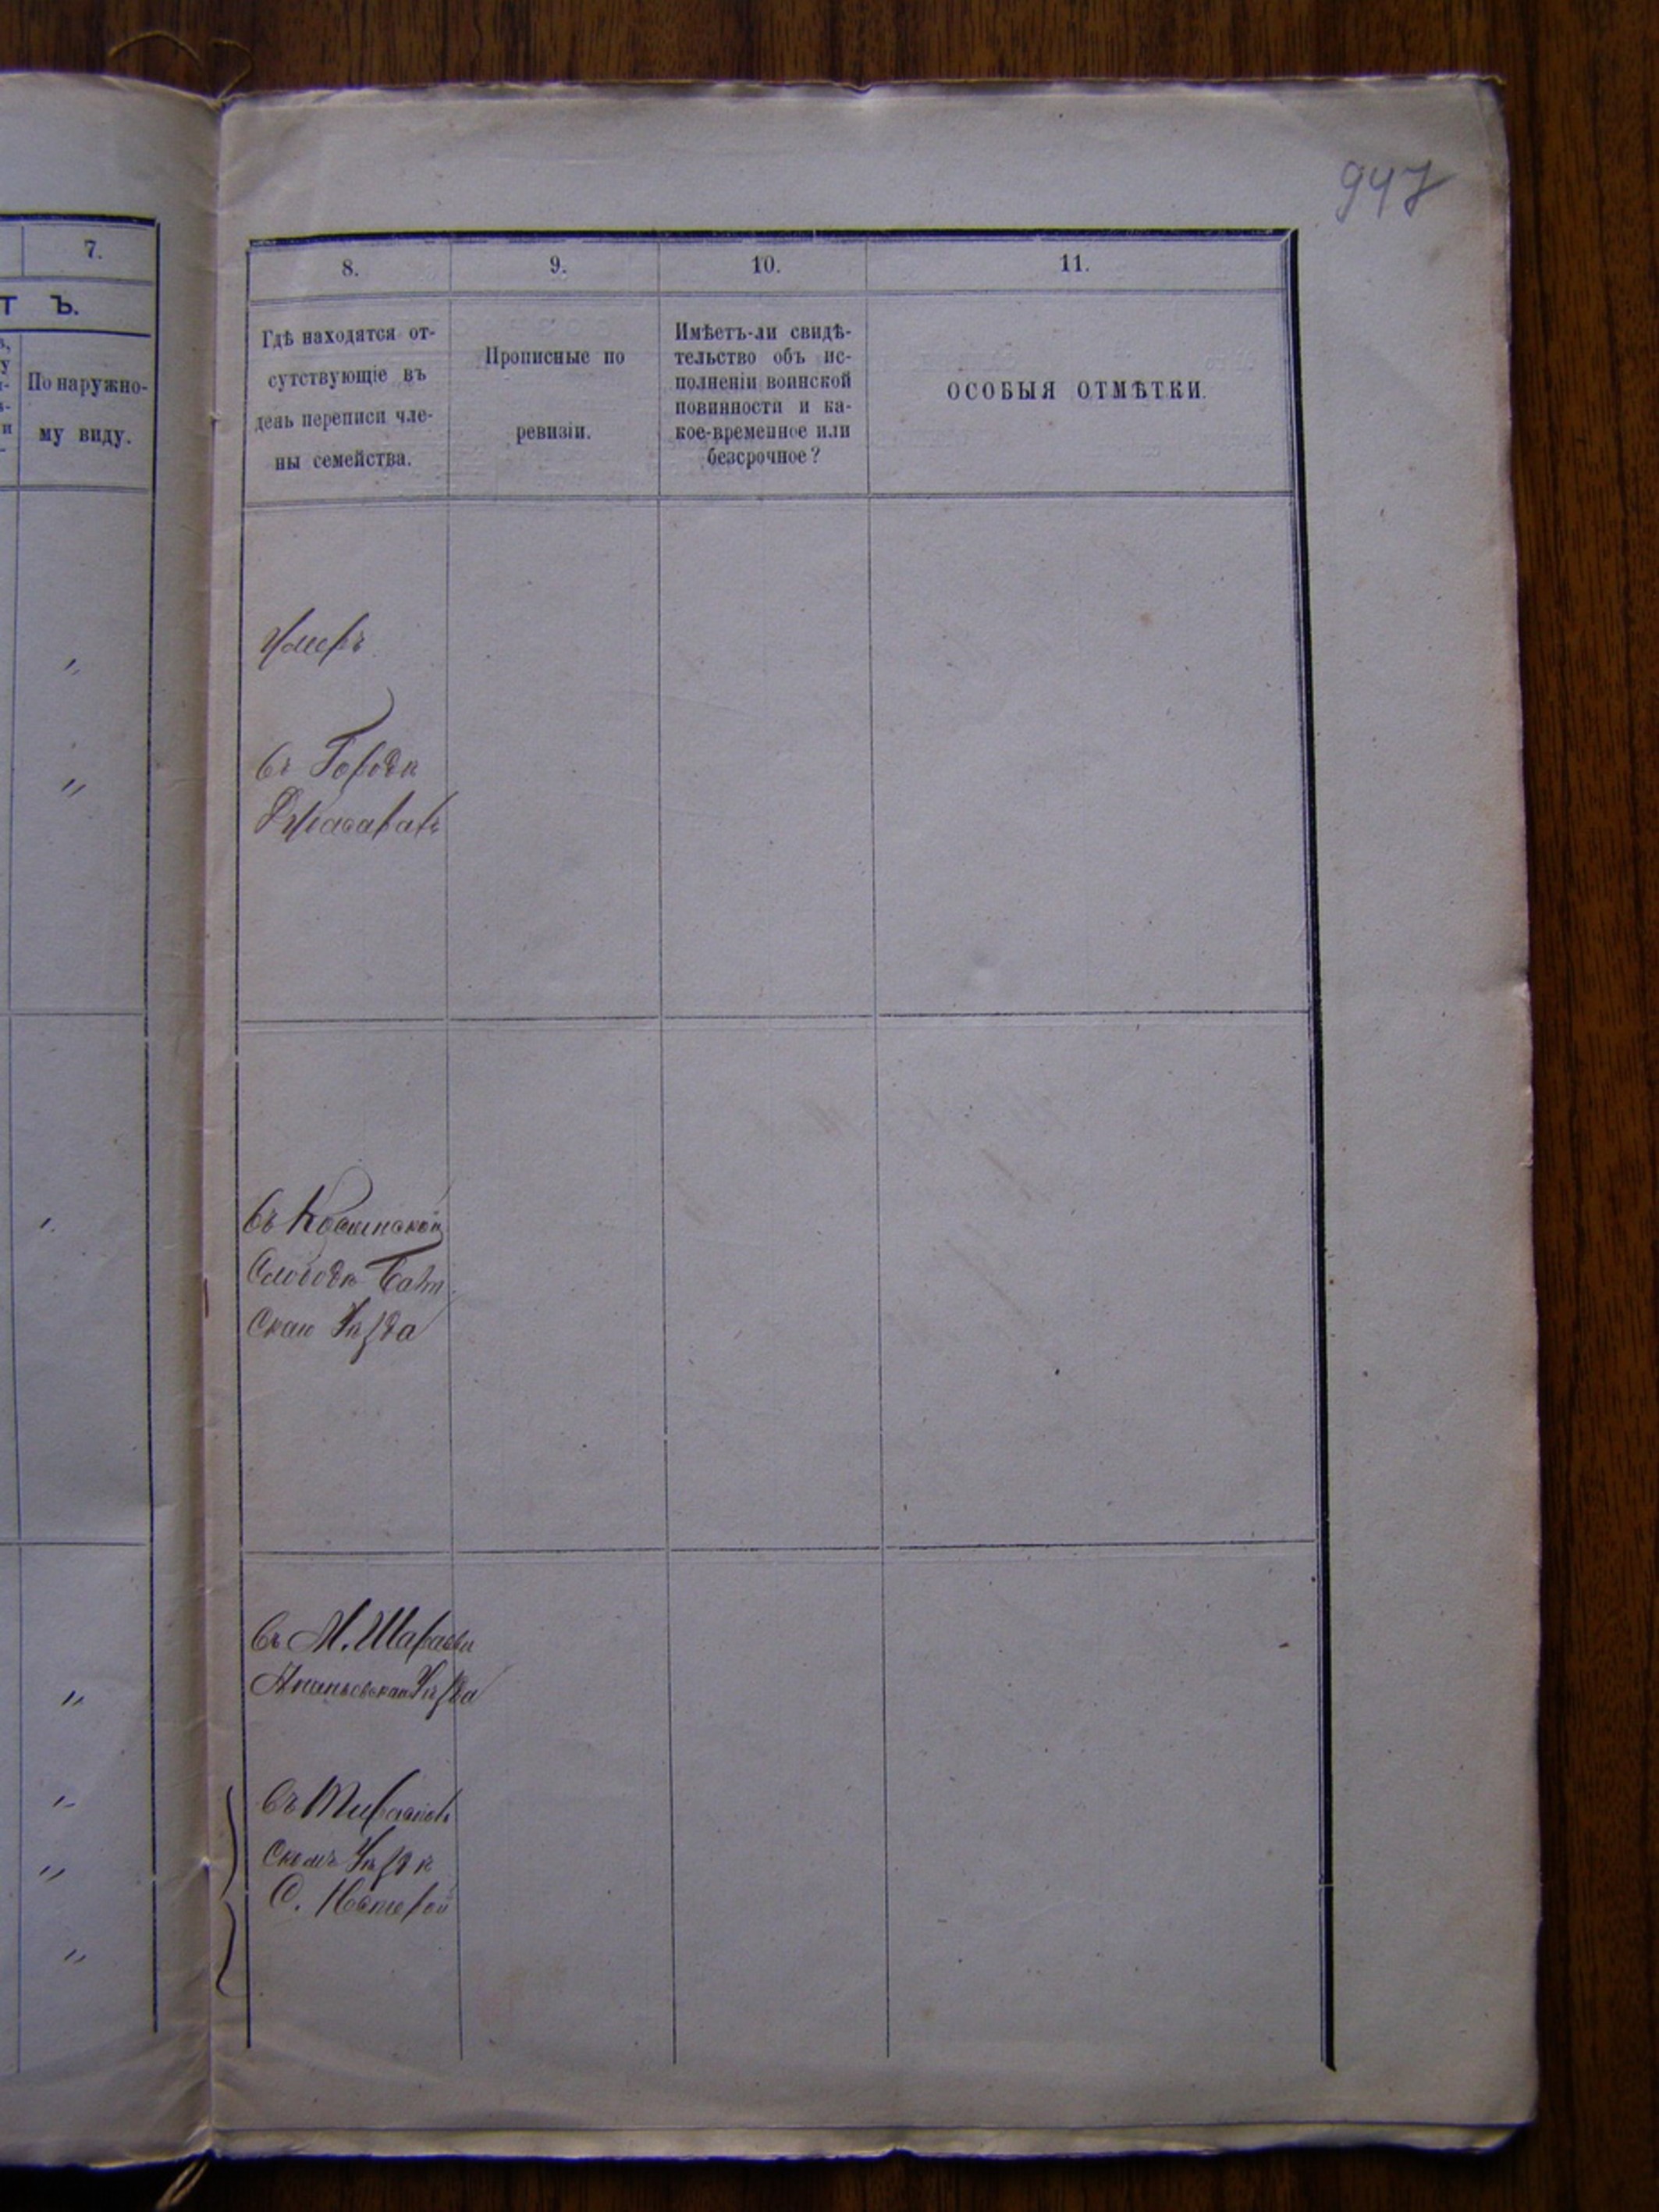 947
7.
Т Ъ.
По наружно-
му виду.
8.
9.
10.
11.
Гдѣ находятся от-
сутствующіе въ
день переписи чле-
ны семейства.
Прописные по
ревизіи.
Имѣетъ-ли свидѣ-
тельство объ ис-
полненіи воинской
повинности и ка-
кое-временное или
безсрочное?
ОСОБЫЯ ОТМѢТКИ.
Умеръ
Въ Городѣ
Въ
Слободѣ
Уѣзда
Въ М. Шараева
Ананьевскаго Уѣзда
Въ Тирасполь
скомъ Уѣздѣ
С.